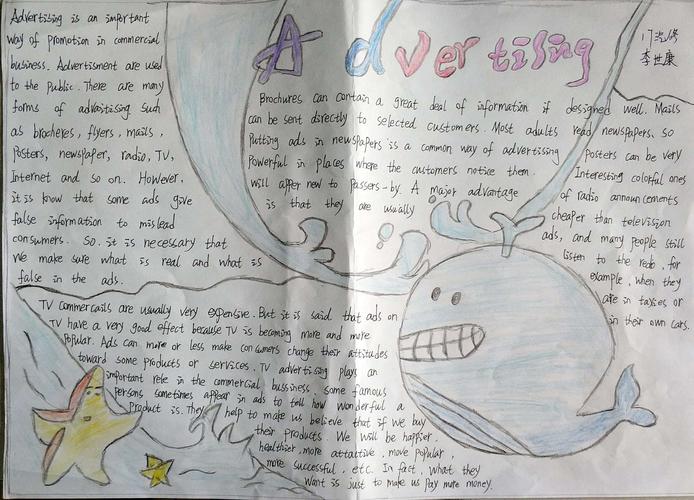 Advertising
17汽修
李世康
Advertising is an important
way of promotion in commercial
business. Advertisment are used
to the Public. There are many
forms of advaitising such
as brocheres, flyers, mails,
Posters, newspaper, radio, TV,
Internet and so on. However,
it is know that some ads give
false information to mislead
consumers. So. it is necessary that
We make sure what is real and what is
false in the ads.
Brochures can contain a great deal of information if designed well. Mails
can be sent directly to selected customers. Most adults read newspapers, so
Putting ads in newspapers is a common way of advertising Posters can be very
Powerful in places where the customers notice them. Interesting colorful ones
will apper new to Passers-by. A major advantage of radio announcements
is that they are usually cheaper than television
ads, and many people still
listen to the redo, for
example, when they
are in taxies or
in their own cars.
TV commercails are usually very expensive. But it is said that ads on
TV have a very good effect because TV is becoming more and more
Popular. Ads can more or less make consumers change their attitudes
toward some products or services. TV advertising plays an
important role in the commercial bussiness. Some famous
Persons sometimes appear in ads to tell how wonderful a
Product is. They help to make us believe that if we buy
their products We will be happier.
healthier, more attractive, move popular,
more successful, etc. In fact, what they
Want is just to make us Pay more money.